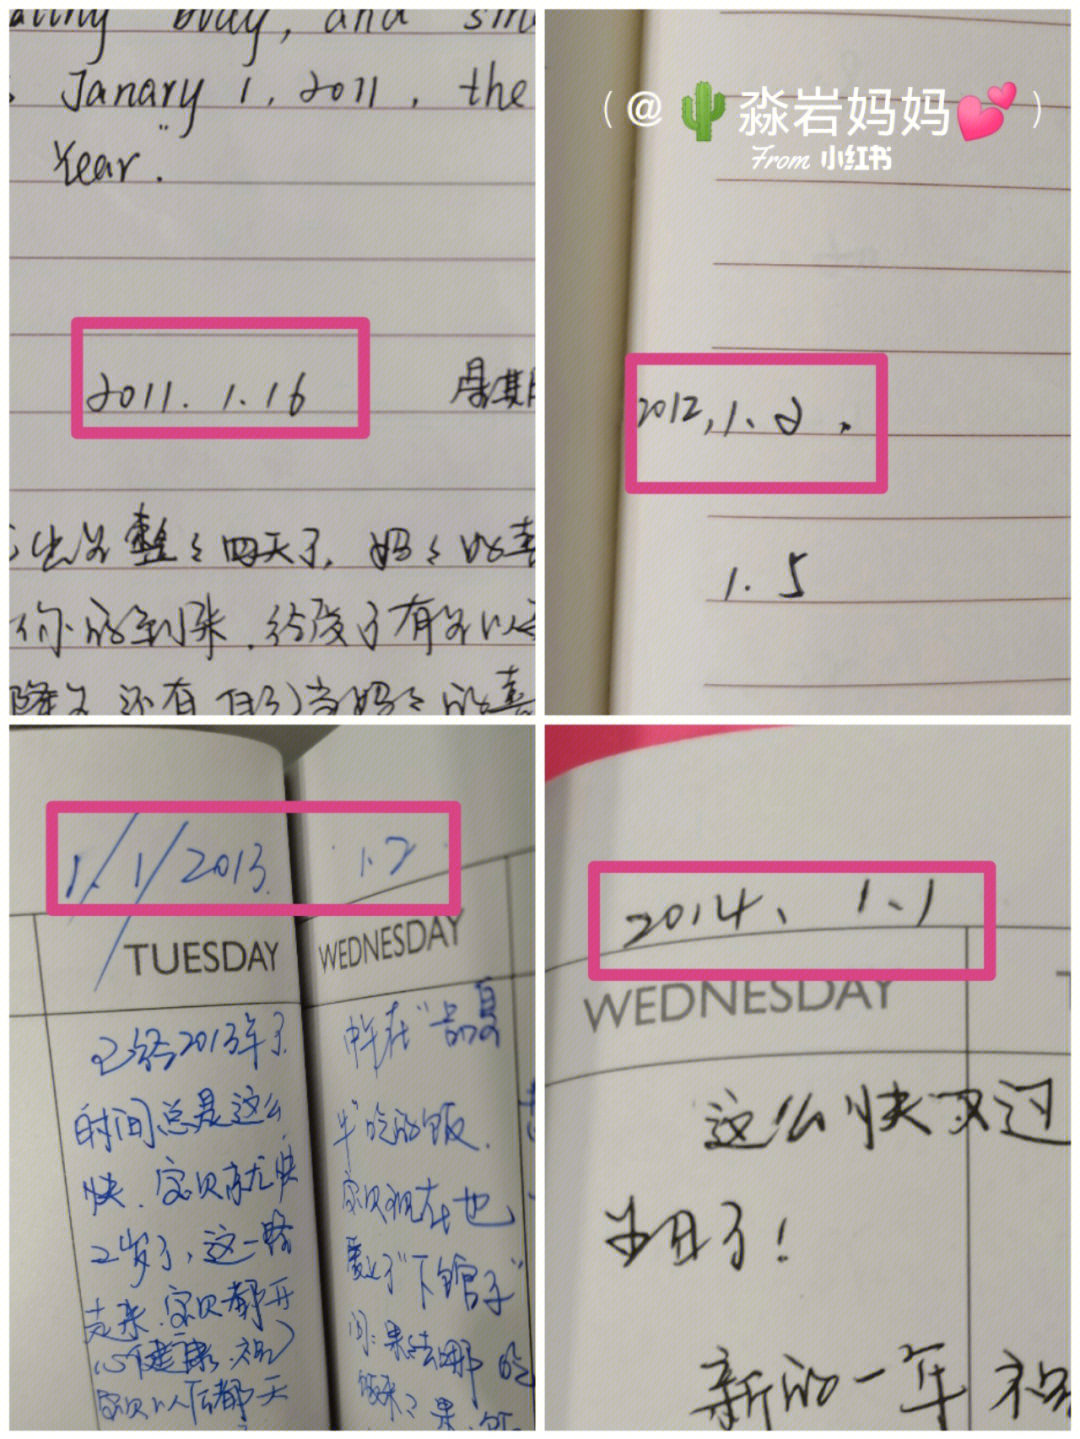 body, and
Janary 1, 2011, the
Year.
2011. 1.16 星期
出生整整四天了, 妈妈
你的到来, 给
还有自己当妈妈的喜
(@🌵淼岩妈妈💕)
From 小红书
2012, 1、2.
1.5
1/1/2013.
TUESDAY
已经2013年了
时间总是这么
快. 宝贝就快
2岁了, 这一路
走来. 宝贝都开
心健康, 祝
宝贝以后都天
1.2
WEDNESDAY
吃的饭.
宝贝现在也
爱上了“下馆子”
问: 果去哪吃
饭来? 果:
2014、 1、1
WEDNESDAY
这么快又过
生日了!
新的一年 祝